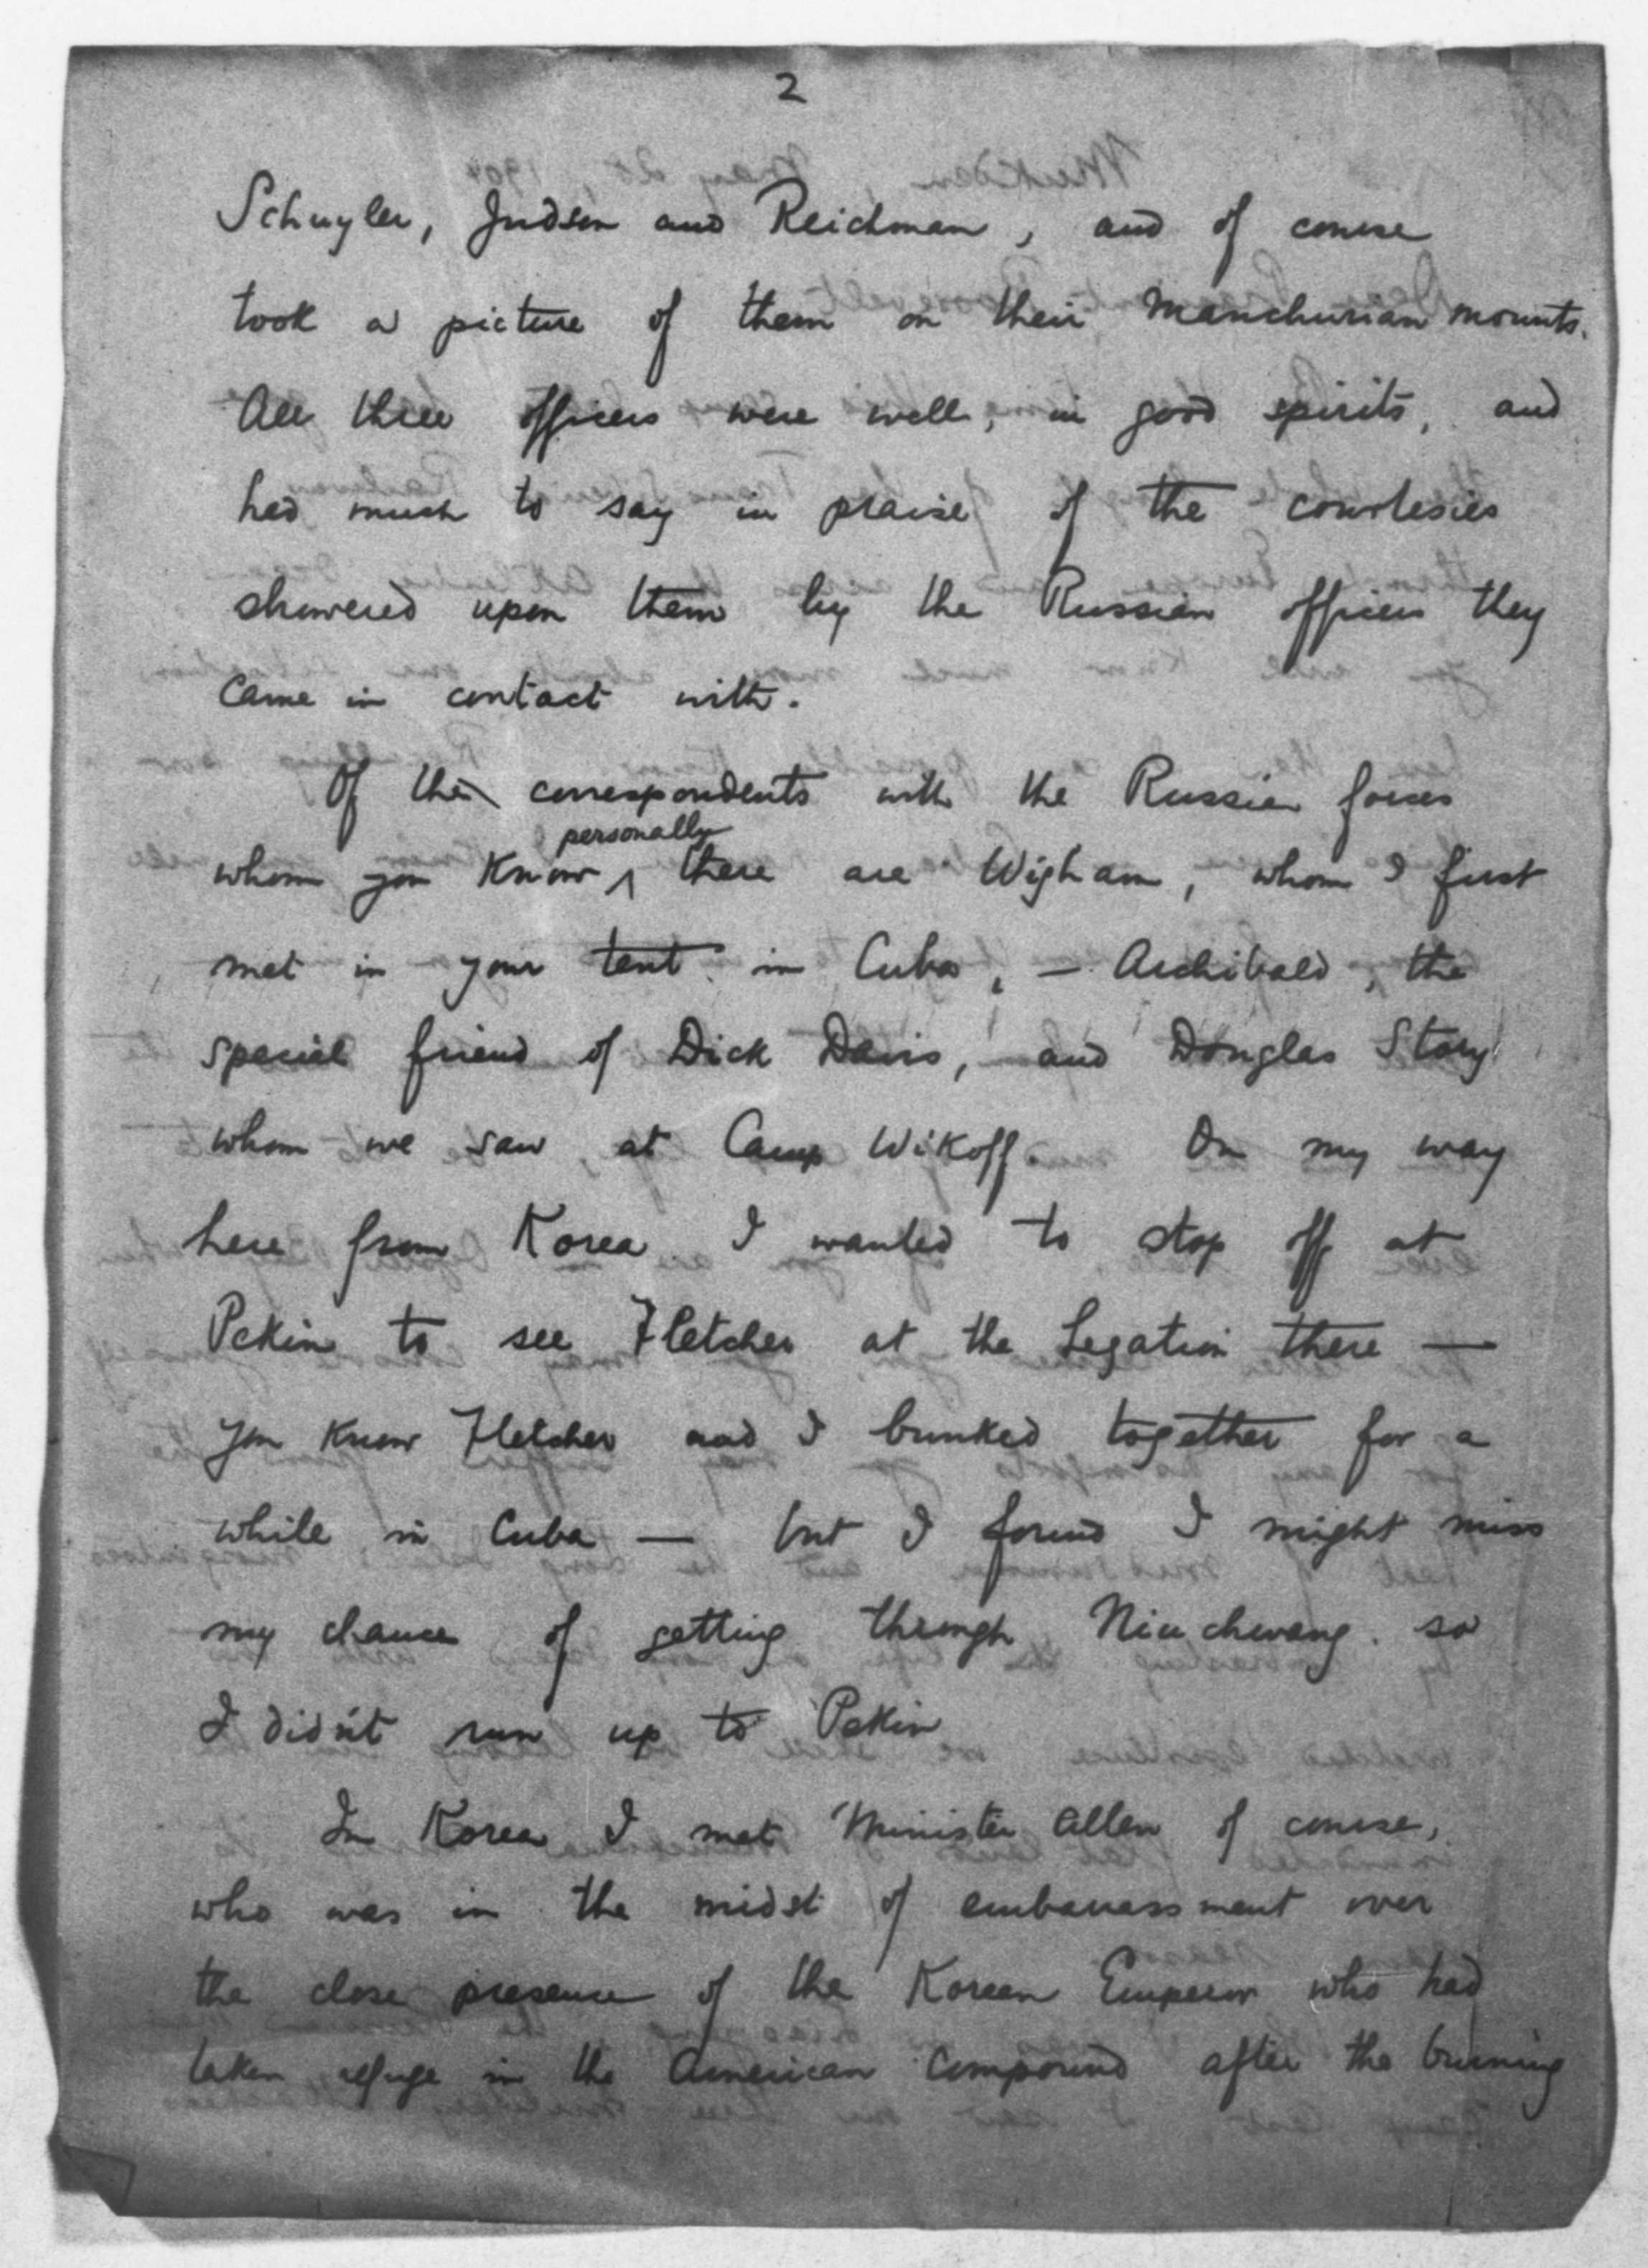 2
Schuyler, Judson and Reichman, and of course
took a picture of them on their Manchurian mounts.
All three officers were well, in good spirits, and
had much to say in praise of the courtesies
showered upon them by the Russian officers they
came in contact with.
Of the correspondents with the Russian forces
personally
whom you know ^ there are Wigham, whom I first
met in your tent in Cuba, — Archibald, the
special friend of Dick Davis, and Douglas Story
whom we saw at Camp Wikoff. On my way
here from Korea I wanted to stop off at
Pekin to see Fletcher at the Legation there —
you know Fletcher and I bunked together for a
while in Cuba — but I found I might miss
my chance of getting through Niuchwang. so
I didn't run up to Pekin
In Korea I met Minister Allen of course,
who was in the midst of embarrassment over
the close presence of the Korean Emperor who had
taken refuge in the American Compound after the burning